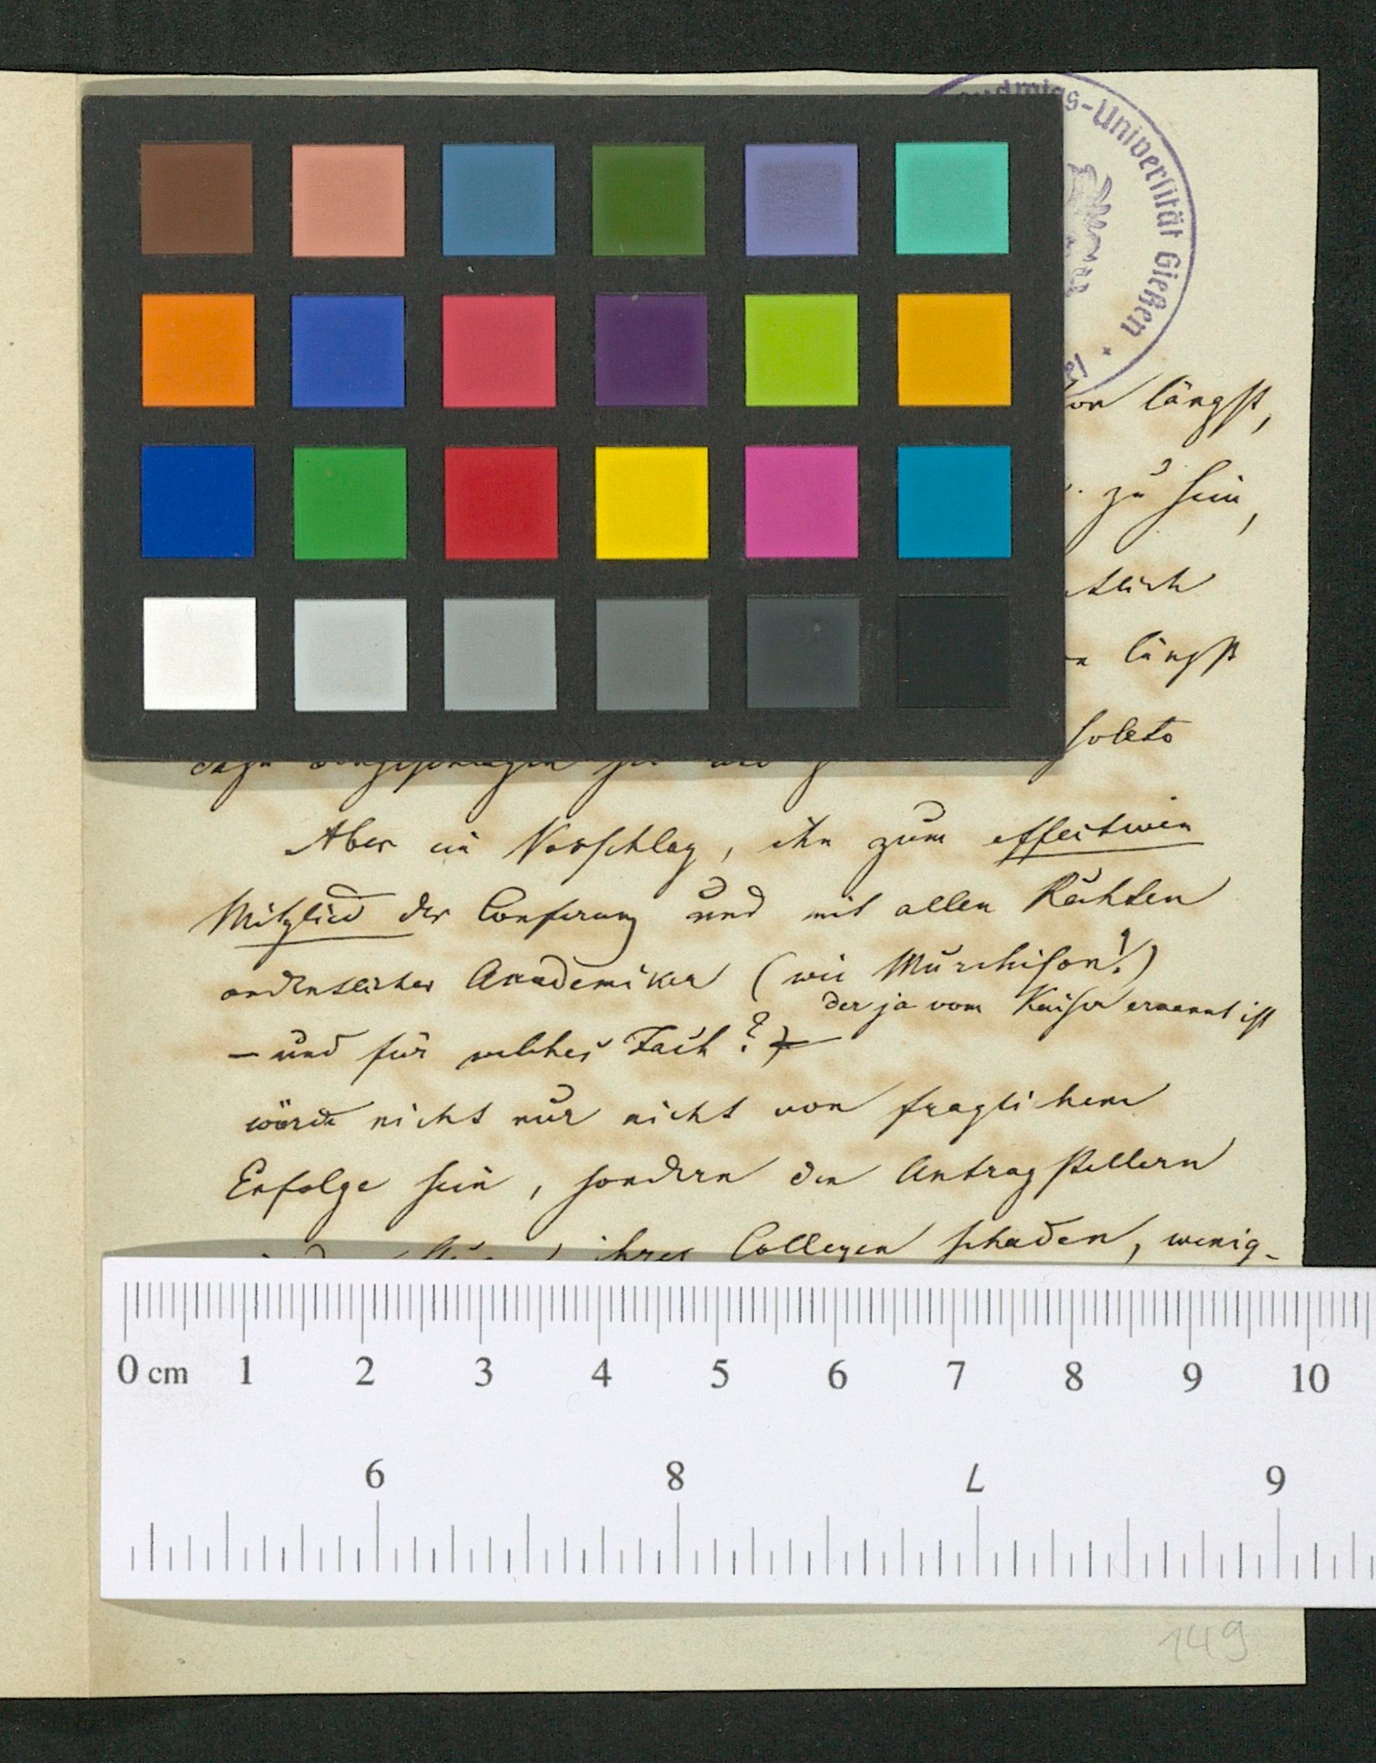 Ludwigs-Universität Gießen
längst,
zu sein,
längst
Aber ein Vorschlag, ihn zum effectiven
Mitglied der Conferenz und mit allen Rechten
ordentlicher Academiker (wie Murchison!)
der ja vom Kaiser ernannt ist
– und für welches Fach?
würde nicht nur nicht von fraglichem
Erfolge sein, sondern den Antragstellern
ihres Collegen schaden, wenig-
0 cm 1 2 3 4 5 6 7 8 9 10
9 8 7 6
149